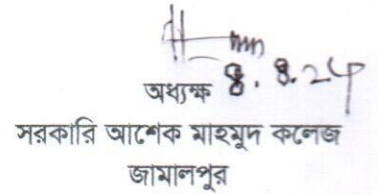 অধ্যক্ষ
সরকারি আশেক মাহমুদ কলেজ
জামালপুর